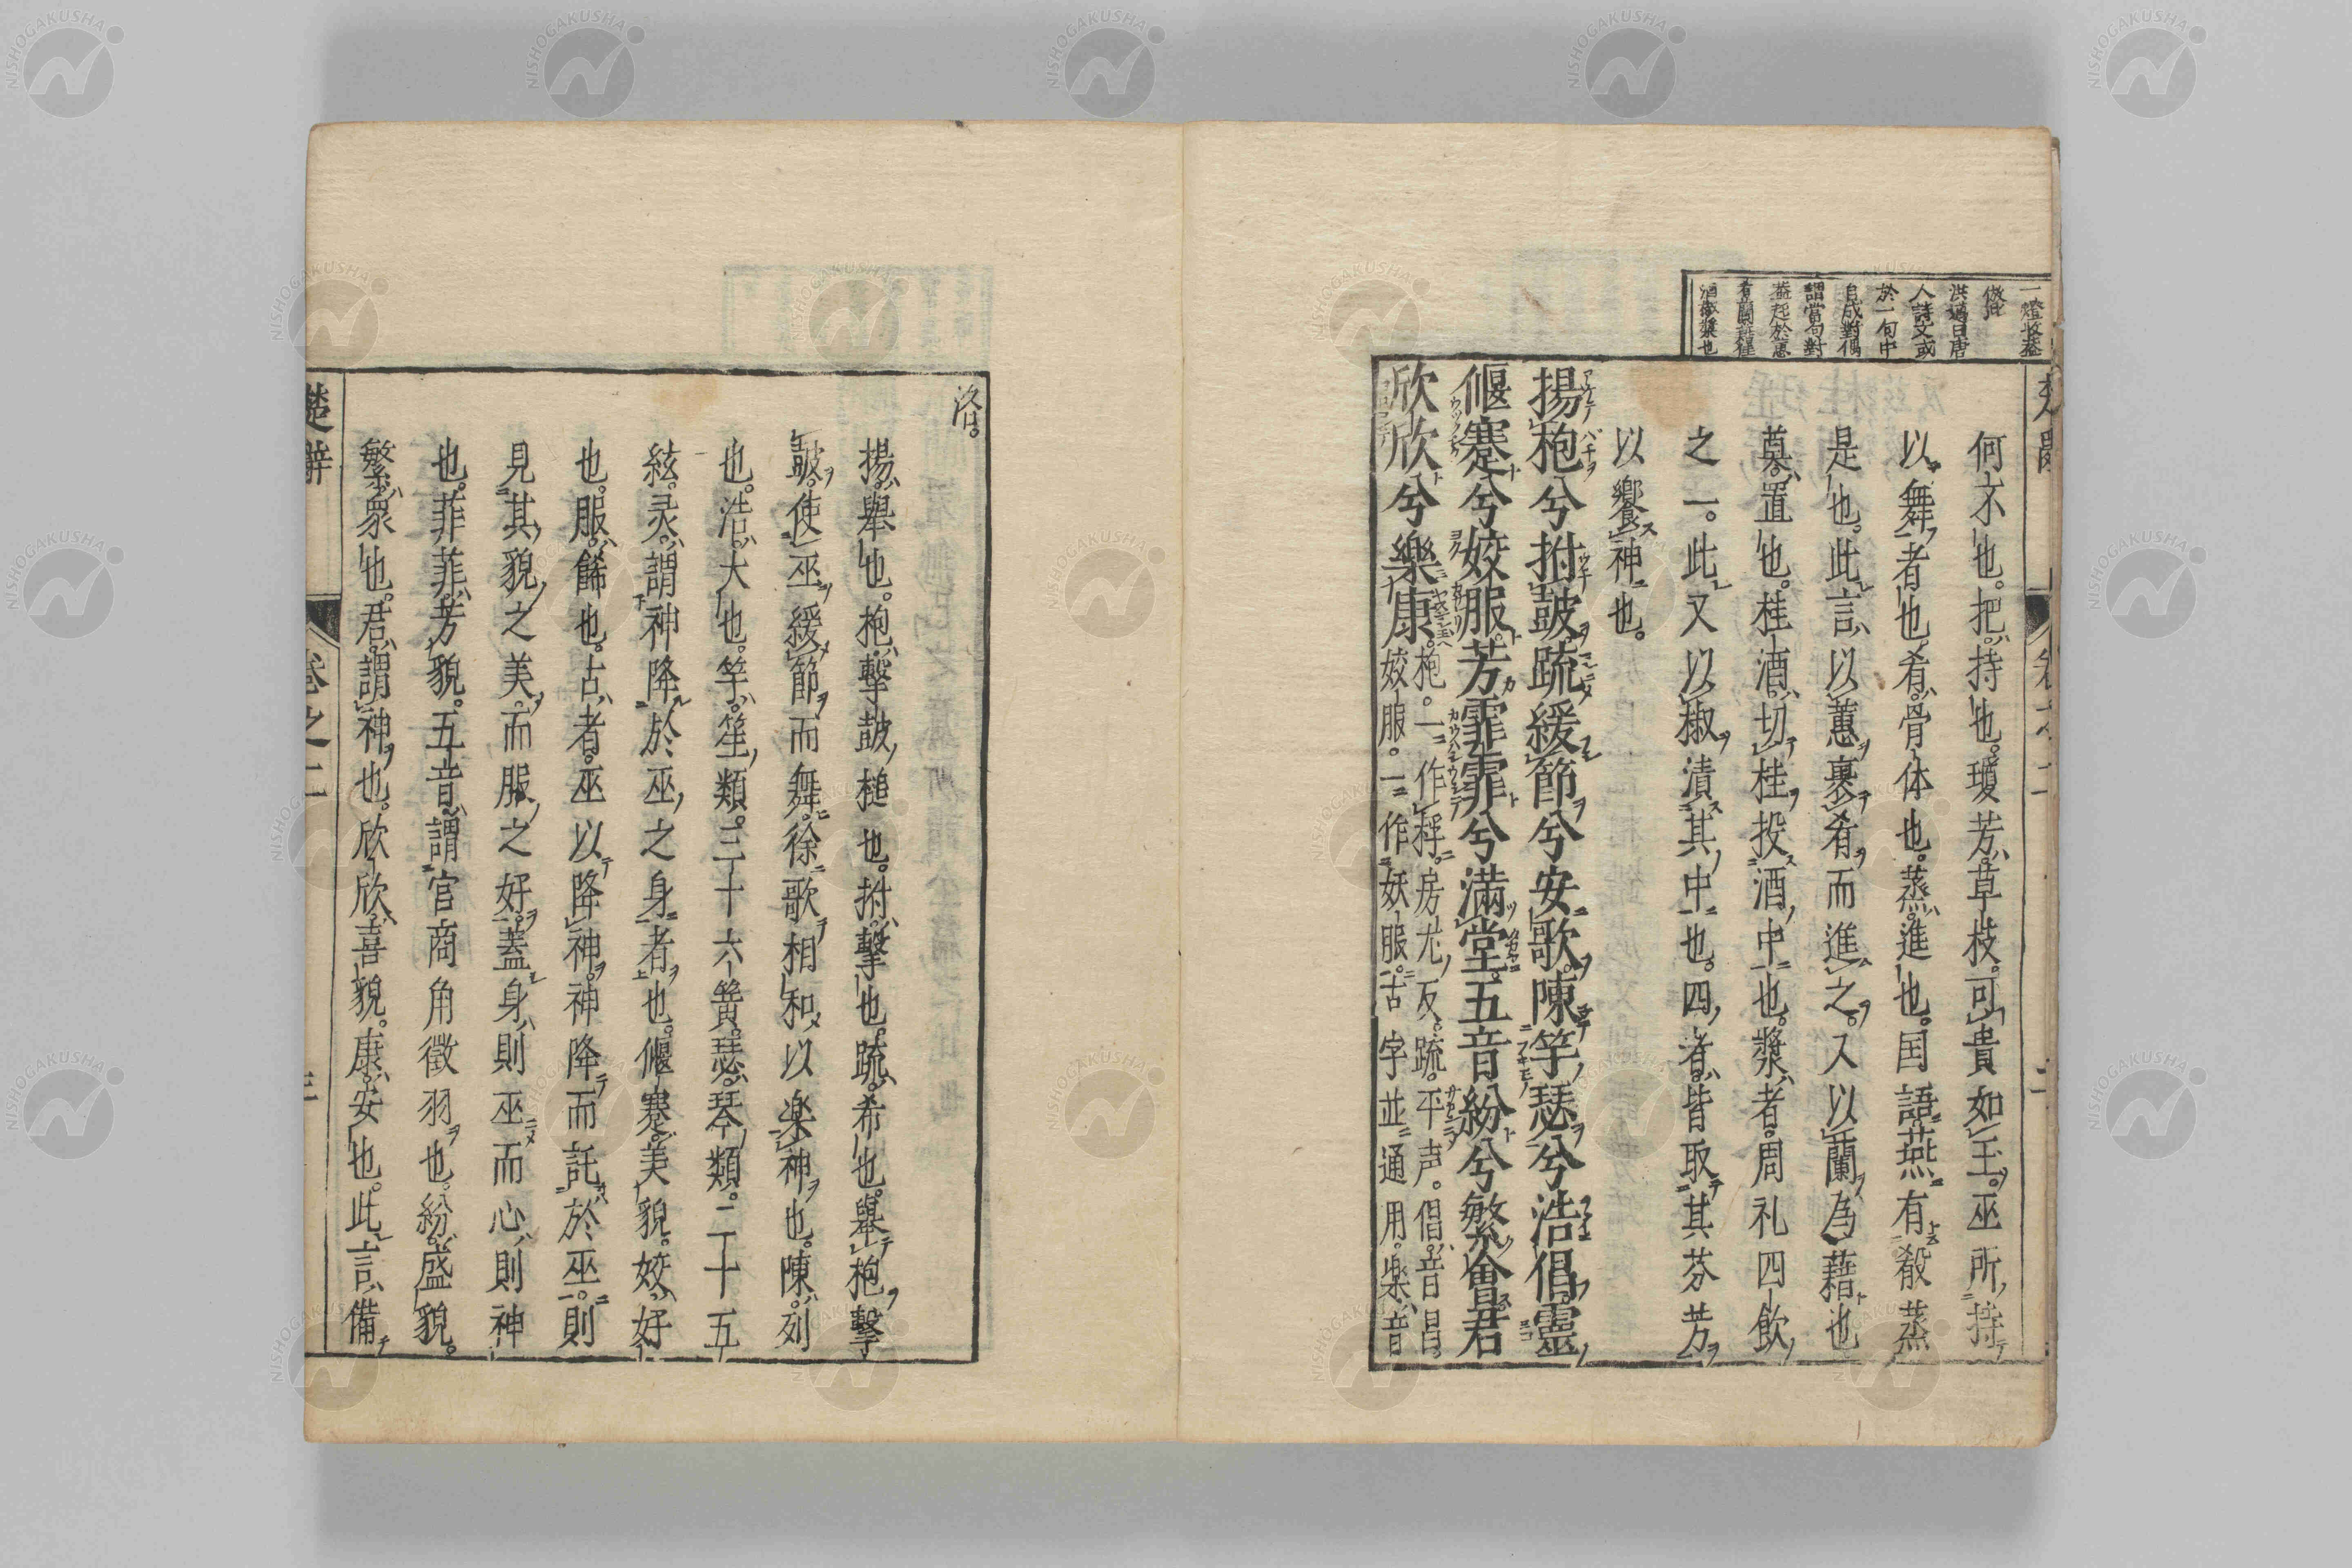 洪邁曰唐
人詩文或
於一句中
自成對偶
謂當句對
蓋起於蕙
肴蘭藉桂
酒椒漿也
何不也。把持也。瓊芳草枝。可貴如玉。巫所持
以舞者也。肴骨体也。蒸進也。国語燕有殽蒸
是也。此言以蕙裹肴而進之。又以蘭為藉也
奠置也。桂酒切桂投酒中也。漿者。周礼四飲
之一。此又以椒漬其中也。四者。皆取其芬芳
以饗神也。
揚枹兮拊鼓。疏緩節兮安歌。陳竽瑟兮浩倡。靈
偃蹇兮姣服。芳霏霏兮滿堂。五音紛兮繁會。君
欣欣兮樂康。
枹。一作桴。房尤反。疏。平声。倡。音昌。
姣服。一作妖服。古字並通用。楽音
洛。
揚。舉也。枹。擊鼓槌也。拊。擊也。疏。希也。舉枹擊
鼓。使巫緩節而舞。徐歌相和。以楽神也。陳。列
也。浩。大也。竽。笙類。三十六簧。瑟。琴類。二十五
絃。灵謂神降於巫之身者也。偃蹇。美貌。姣。好
也。服。餙也。古者。巫以降神。神降而託於巫。則
見其貌之美。而服之好。蓋身則巫而心則神
也。菲菲。芳貌。五音。謂宮商角徵羽也。紛。盛貌。
繁。衆也。君。謂神也。欣欣。喜貌。康。安也。此言備
楚辭
卷之二
NISHOGAKUSHA